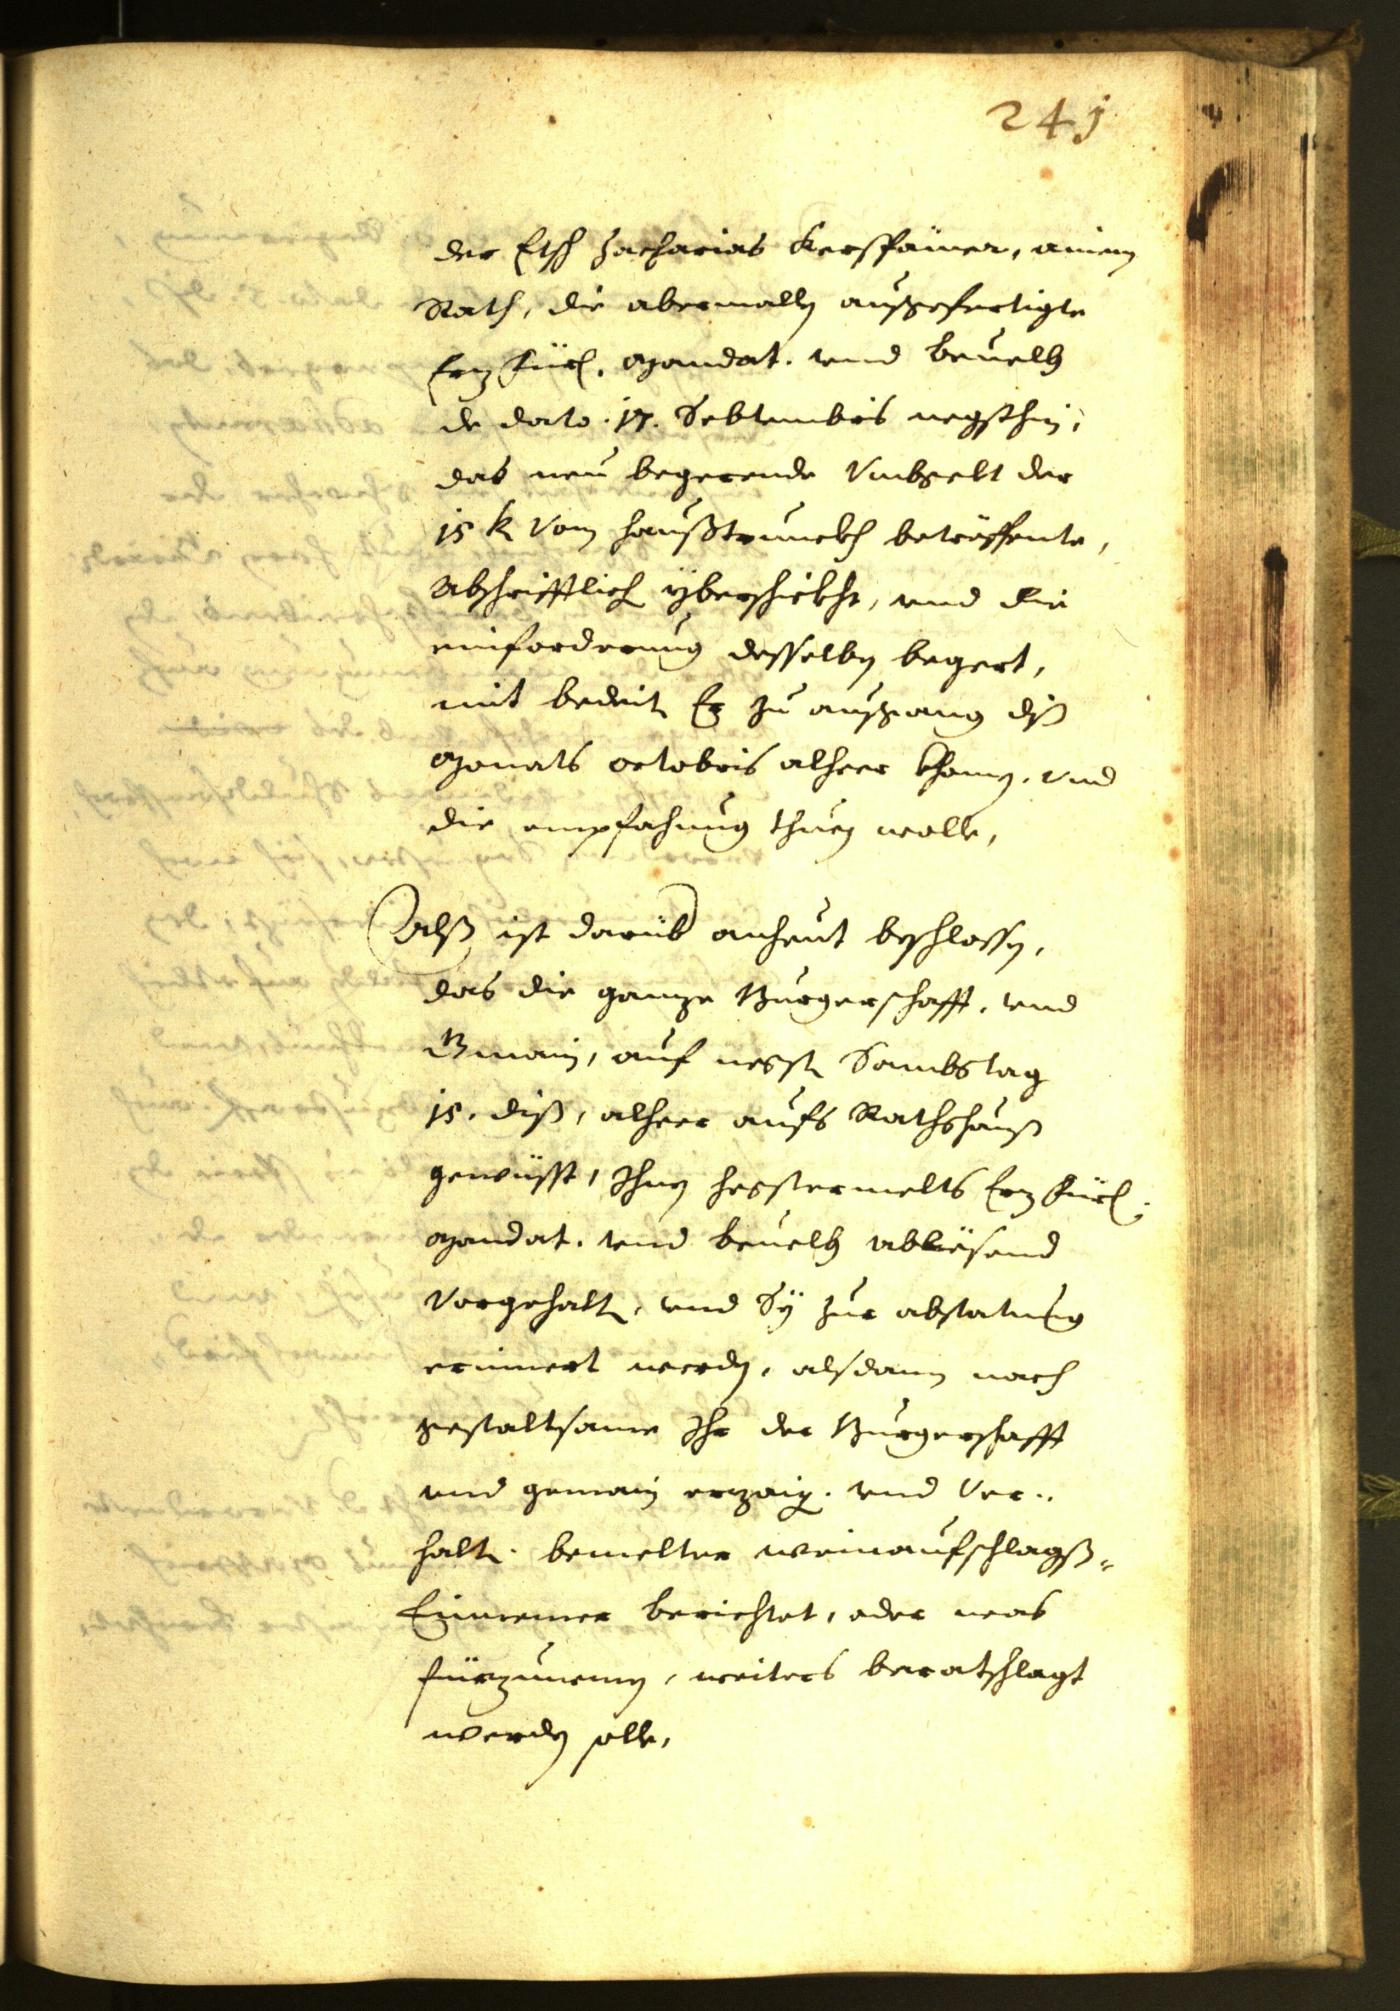 241
der Etsch Zacharias Kerspämer, ainem
Rath, die abermalln außgefertigte
Erzfürl. Mandat. vnd beuelh
de dato .17. Septembris negsthin,
das neu begerende Vmbgelt der
15 k vom Haußtrunckh beträffente,
Abschrifftlich yberschickht, vnd die
einforderung desselbn begert,
mit bedeit Er zu außgang diß
Monats octobris alheer khomen. vnd
die empfahung thuen wolle,
Alß ist darüb anheut beschlossn,
das die ganze Burgerschafft, vnd
Gmain, auf negst Sambstag
15. diß, alheer aufs Rathshauß
gewüsst, Ihnen hegstermelts Erzfürl.
Mandat. vnd beuelh ablësend
Vorgehalt, vnd Sÿ zur abstatung
erinnert werdn, alsdann nach
gestaltsame Ihr der Burgerschafft
vnd gemain erzaig. vnd Ver-
halt. bemelter weinaufschlagß-
Einnemer berichtet, oder was
fürzunemen, weiters beratschlagt
werden solle,